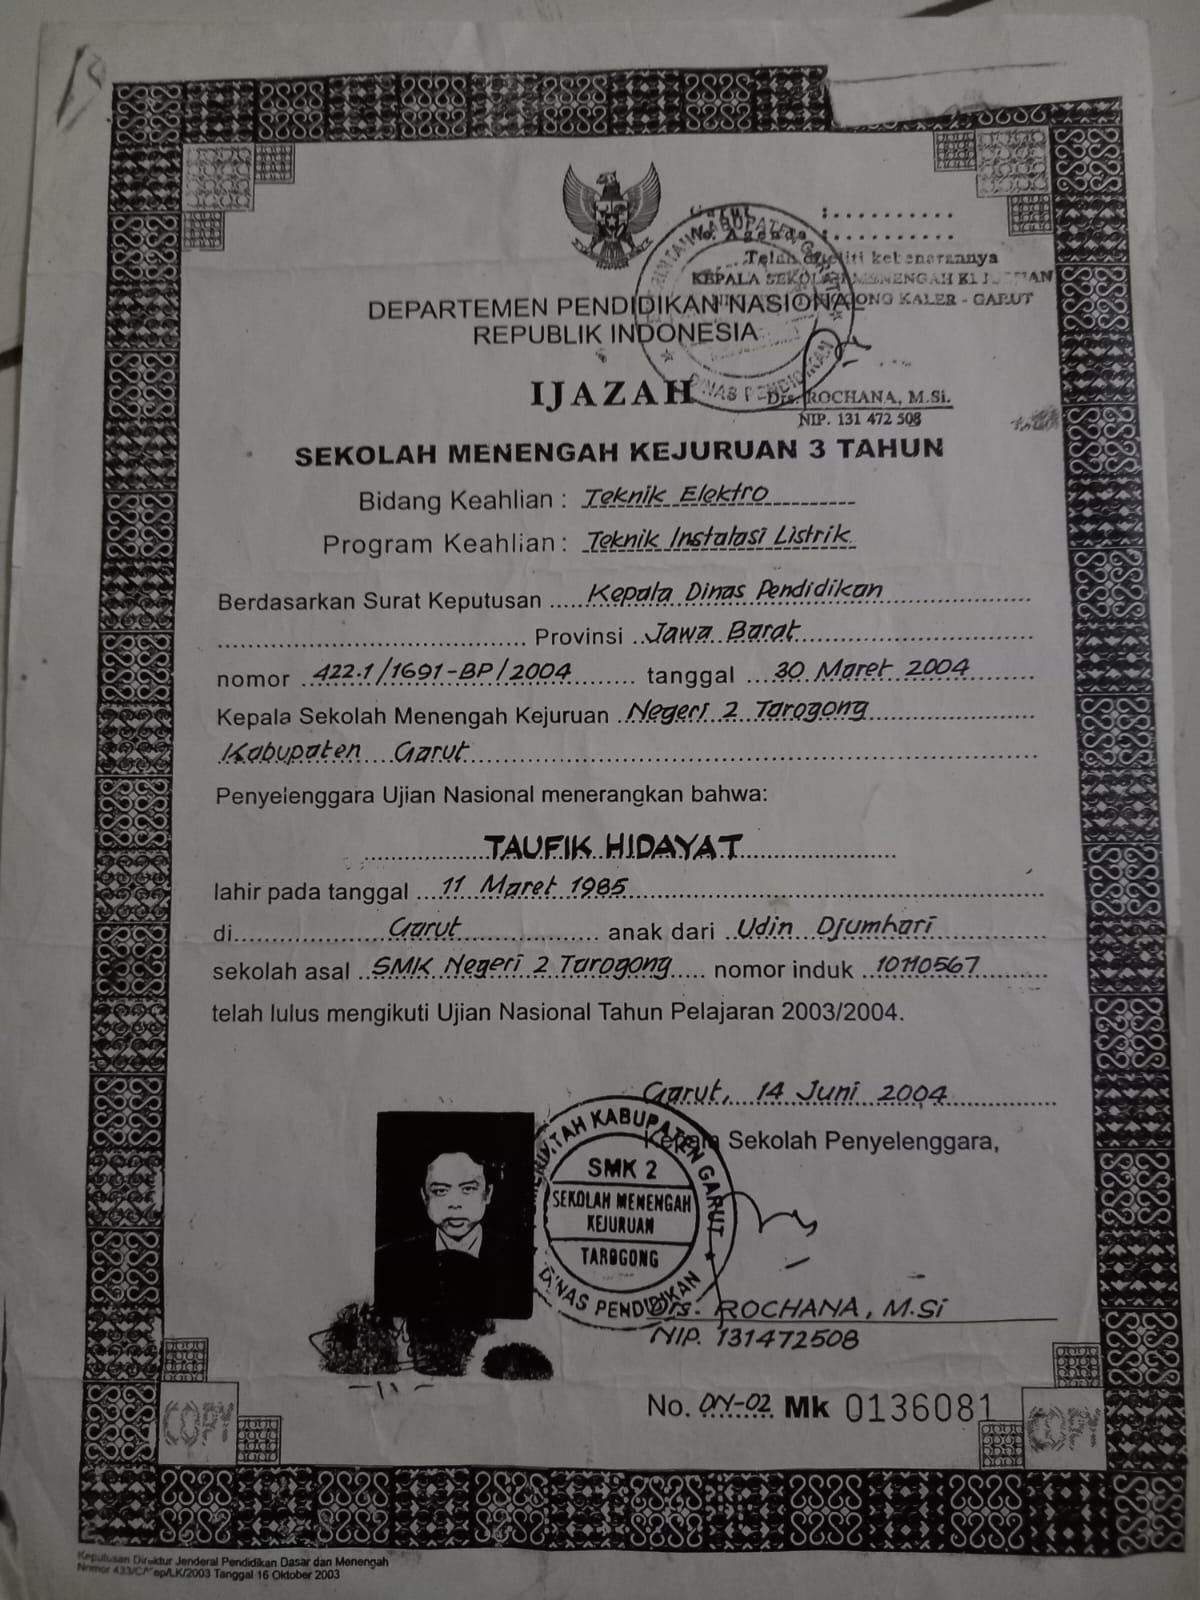 Garut :..........
No. Agenda :..........
Telah diteliti kebenarannya
KEPALA SEKOLAH MENENGAH
ONG KALER - GARUT
DEPARTEMEN PENDIDIKAN NASIONAL
REPUBLIK INDONESIA
DINAS PENDIDIKAN
IJAZAH
Drs. ROCHANA, M.Si.
NIP. 131 472 508
SEKOLAH MENENGAH KEJURUAN 3 TAHUN
Bidang Keahlian : Teknik Elektro
Program Keahlian : Teknik Instalasi Listrik
Berdasarkan Surat Keputusan Kepala Dinas Pendidikan
Provinsi Jawa Barat
nomor 422.1/1691-BP/2004 tanggal 30 Maret 2004
Kepala Sekolah Menengah Kejuruan Negeri 2 Tarogong
Kabupaten Garut
Penyelenggara Ujian Nasional menerangkan bahwa:
TAUFIK HIDAYAT
lahir pada tanggal 11 Maret 1985
di Garut anak dari Udin Djumhari
sekolah asal SMK Negeri 2 Tarogong nomor induk 10110567
telah lulus mengikuti Ujian Nasional Tahun Pelajaran 2003/2004.
Garut, 14 Juni 2004
Kepala Sekolah Penyelenggara,
KABUPATEN GARUT
SMK 2
SEKOLAH MENENGAH
KEJURUAN
TAROGONG
DINAS PENDIDIKAN
Drs. ROCHANA, M.Si
NIP. 131472508
No. DN-02 Mk 0136081
COPY
Keputusan Direktur Jenderal Pendidikan Dasar dan Menengah
Tanggal 16 Oktober 2003